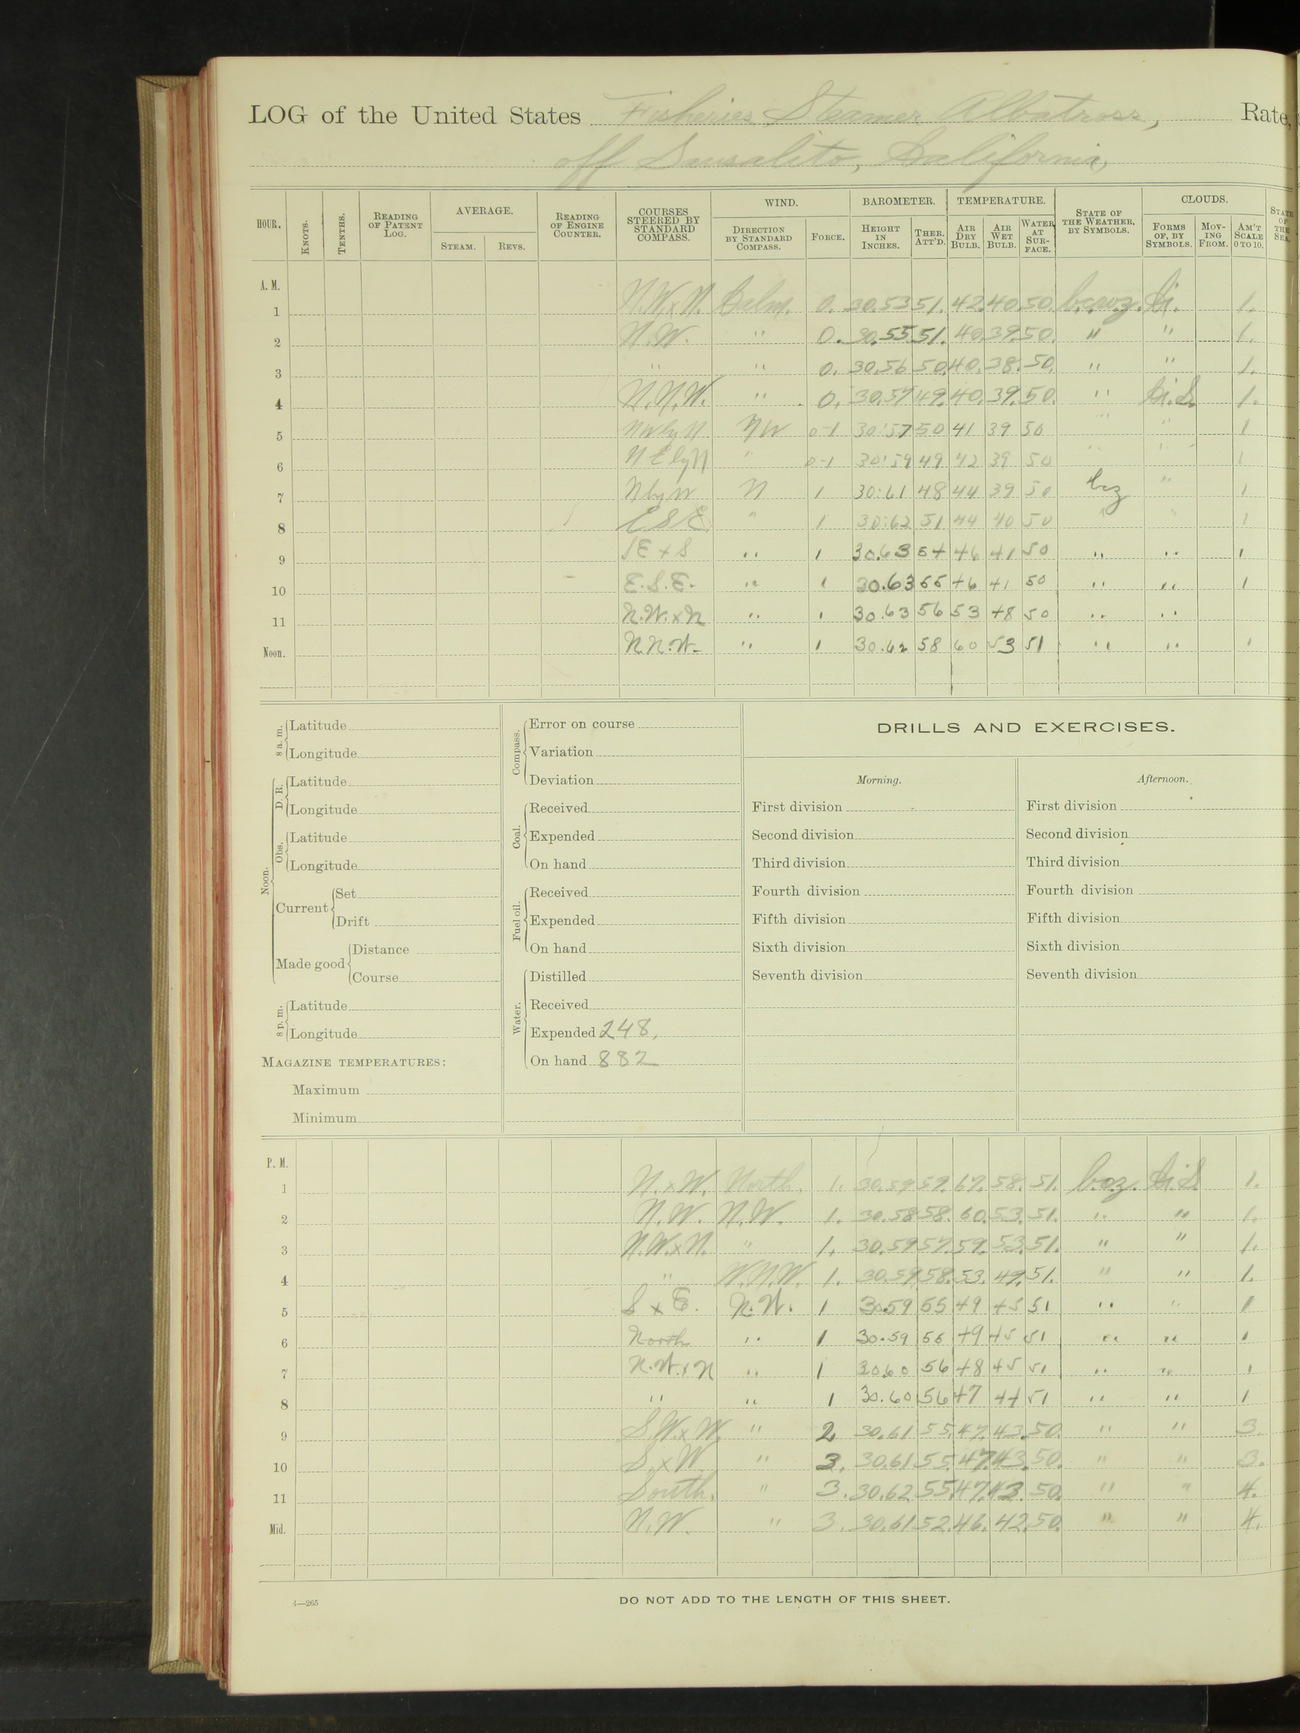 LOG of the United States Fisheries Steamer Albatross, Rate,
off Sausalito, California,
HOUR. KNOTS. TENTHS. READING OF PATENT LOG. AVERAGE. STEAM. REVS. READING OF ENGINE COUNTER. COURSES STEERED BY STANDARD COMPASS. WIND. DIRECTION BY STANDARD COMPASS. FORCE. BAROMETER. HEIGHT IN INCHES. THER. ATT'D. TEMPERATURE. AIR DRY BULB. AIR WET BULB. WATER AT SURFACE. STATE OF THE WEATHER, BY SYMBOLS. CLOUDS. FORMS OF, BY SYMBOLS. MOVING FROM. AM'T SCALE 0 TO 10. STATE OF THE SEA.
A. M.
1 N.W.xN. Calm. 0. 30.53 51. 42. 40. 50. Ci. 1.
2 N.W. " 0. 30.55 51. 40. 39. 50. " " 1.
3 " " 0. 30.56 50. 40. 38. 50. " " 1.
4 N.N.W. " 0. 30.57 49. 40. 39. 50. " Ci.S. 1.
5 NWbyN NW 0-1 30:57 50 41 39 50 " " 1
6 NEbyN " 0-1 30:59 49 42 39 50 " " 1
7 NbyW N 1 30:61 48 44 39 50 bcz " 1
8 ESE. " 1 30:62 51 44 40 50 " " 1
9 SE x S " 1 30.63 54 46 41 50 " " 1
10 E.S.E. " 1 30.63 55 46 41 50 " " 1
11 N.W.xN " 1 30.63 56 53 48 50 " "
Noon. NN.W. " 1 30.62 58 60 53 51 " " 1
8 a. m. Latitude
Longitude
Noon. D. R. Latitude
Longitude
Obs. Latitude
Longitude
Current Set
Drift
Made good Distance
Course
8 p. m. Latitude
Longitude
MAGAZINE TEMPERATURES:
Maximum
Minimum
Compass. Error on course
Variation
Deviation
Coal. Received
Expended
On hand
Fuel oil. Received
Expended
On hand
Water. Distilled
Received
Expended 248,
On hand 882
DRILLS AND EXERCISES.
Morning. Afternoon.
First division First division
Second division Second division
Third division Third division
Fourth division Fourth division
Fifth division Fifth division
Sixth division Sixth division
Seventh division Seventh division
P. M.
1 N.xW. North. 1. 30.59 59. 67. 58. 51. bcz. Ci.S. 1.
2 N.W. N.W. 1. 30.58 58. 60. 53. 51. " " 1.
3 N.W.xN. " 1. 30.59 57. 59. 53. 51. " " 1.
4 " W.N.W. 1. 30.59 58. 53. 49. 51. " " 1.
5 S x E. N.W. 1 30.59 55 49 45 51 " " 1
6 North " 1 30.59 56 49 45 51 " " 1
7 N.W.xN " 1 30.60 56 48 45 51 " " 1
8 " " 1 30.60 56 47 44 51 " " 1
9 S.W.xW. " 2. 30.61 55. 47. 43. 50. " " 3.
10 S.xW. " 3. 30.61 55. 47. 43. 50. " " 3.
11 South. " 3. 30.62 55. 47. 43. 50. " " 4.
Mid. N.W. " 3. 30.61 52. 46. 42. 50. " " 4.
3—265 DO NOT ADD TO THE LENGTH OF THIS SHEET.